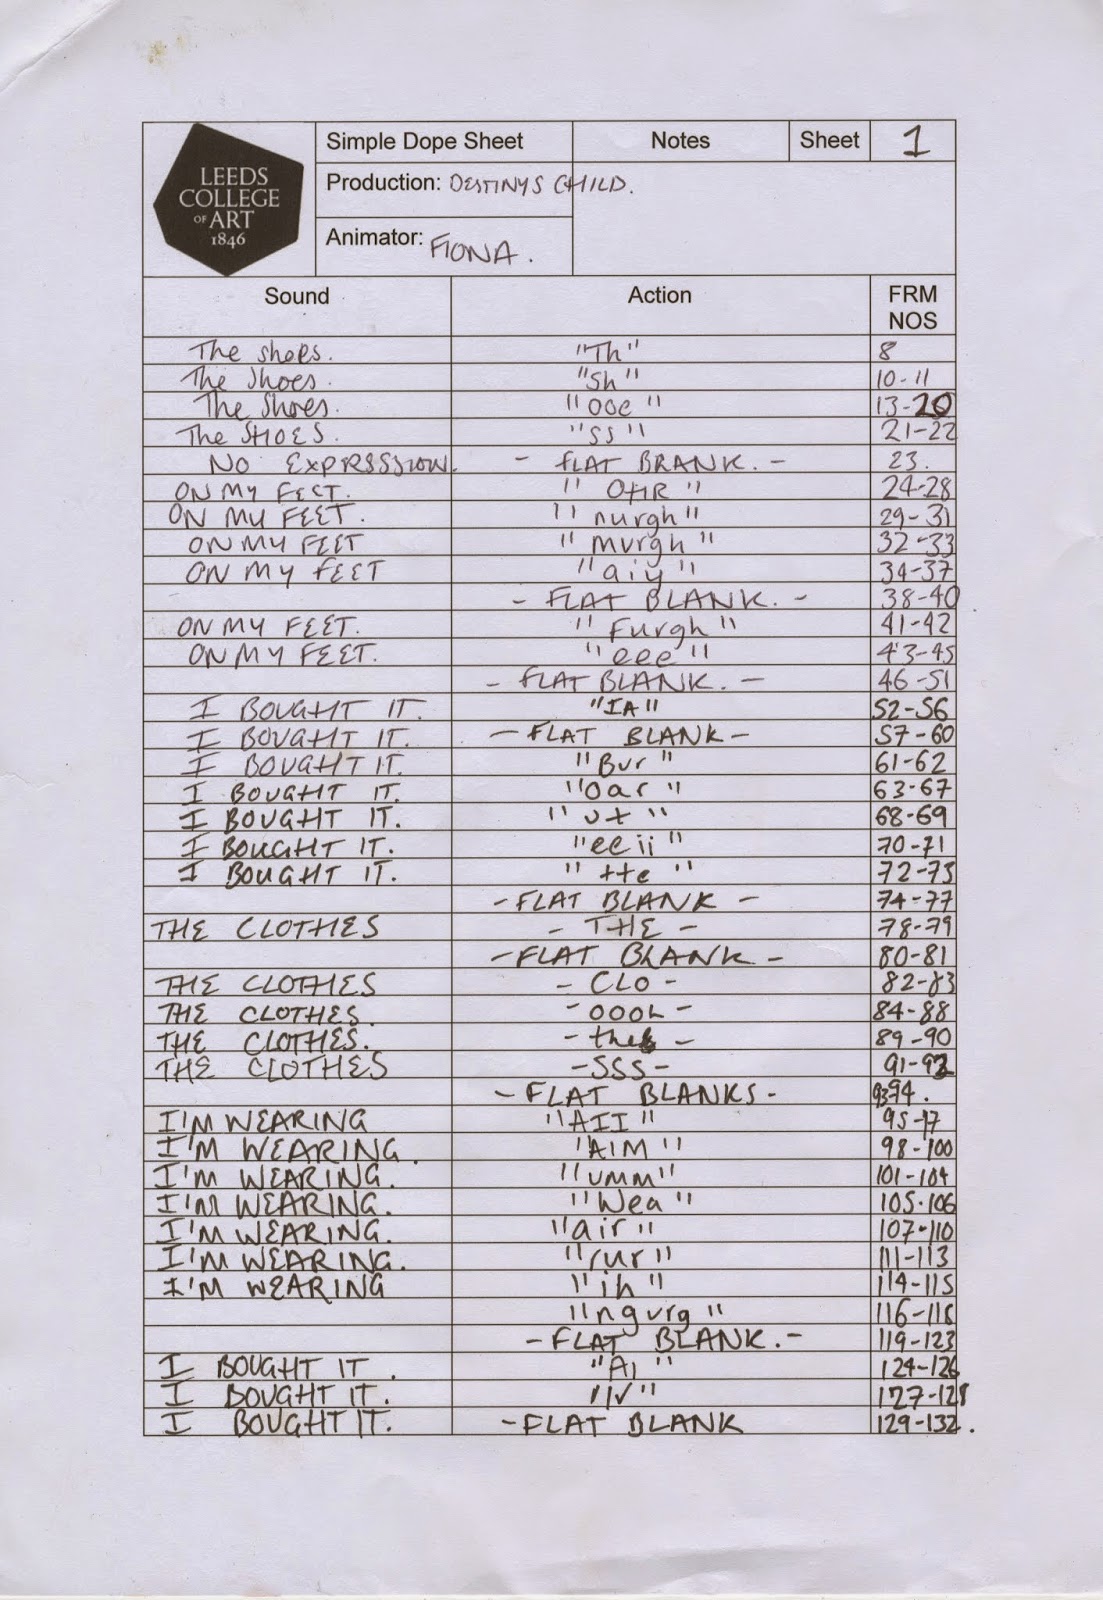 LEEDS
COLLEGE
OF ART
1846
Simple Dope Sheet Notes Sheet 1
Production: DESTINYS CHILD.
Animator: FIONA.
Sound Action FRM NOS
The shoes. "Th" 8
The Shoes. "Sh" 10-11
The Shoes. "ooe" 13-20
The SHOES. "ss" 21-22
NO EXPRSSSION. - FLAT BRANK. - 23.
ON MY FEET. "OHR" 24-28
ON MY FEET. "nurgh" 29-31
ON MY FEET "murgh" 32-33
ON MY FEET "aiy" 34-37
- FLAT BLANK. - 38-40
ON MY FEET. "Furgh" 41-42
ON MY FEET. "eee" 43-45
- FLAT BLANK. - 46-51
I BOUGHT IT. "IA" 52-56
I BOUGHT IT. - FLAT BLANK - 57-60
I BOUGHT IT. "Bur" 61-62
I BOUGHT IT. "Oar" 63-67
I BOUGHT IT. "ut" 68-69
I BOUGHT IT. "eeii" 70-71
I BOUGHT IT. "tte" 72-73
- FLAT BLANK - 74-77
THE CLOTHES - THE - 78-79
- FLAT BLANK - 80-81
THE CLOTHES - CLO - 82-83
THE CLOTHES. - OOOH - 84-88
THE CLOTHES. - - 89-90
THE CLOTHES - SSS - 91-92
- FLAT BLANKS - 9394.
I'M WEARING "AII" 95-
I'M WEARING. "AIM" 98-100
I'M WEARING. "umm" 101-104
I'M WEARING. "Wea" 105-106
I'M WEARING. "air" 107-110
I'M WEARING. "rur" 111-113
I'M WEARING "ih" 114-115
"ngurg" 116-118
- FLAT BLANK. - 119-123
I BOUGHT IT. "AI" 124-126
I BOUGHT IT. 127-128
I BOUGHT IT. - FLAT BLANK 129-132.